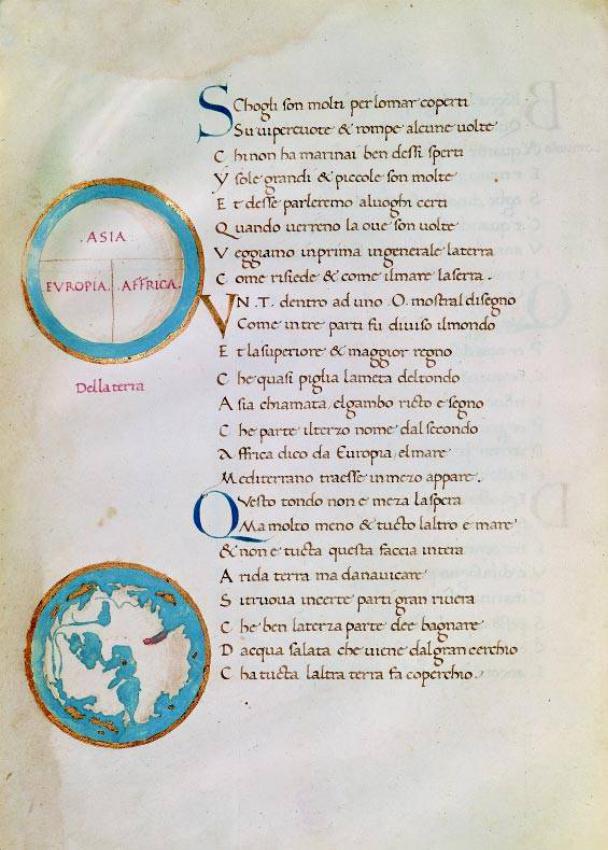 ASIA
EVROPIA. AFFRICA.
Della terra
Schogli son molti per lomar coperti
Su uipercuote & rompe alcune uolte
Chi non ha marinai ben dessi sperti
Ysole grandi & piccole son molte
Et desse parleremo aluoghi certi
Quando uerreno la oue son uolte
Veggiamo inprima ingenerale laterra
Come risiede & come ilmare laserra.
VN .T. dentro ad uno .O. mostral disegno
Come in tre parti fu diuiso ilmondo
Et lasuperiore & maggior regno
Che quasi piglia lameta deltondo
Asia chiamata, elgambo ricto e segno
Che parte ilterzo nome dal secondo
Affrica dico da Europia, elmare
Mediterrano traesse inmezo appare.
Questo tondo non e meza laspera
Ma molto meno & tucto laltro e mare
& non e tucta questa faccia intera
Arida terra ma danauicare
Sitruoua incerte parti gran riuera
Che ben laterza parte dee bagnare
Dacqua salata che uiene dalgran cerchio
Cha tucta laltra terra fa coperchio.